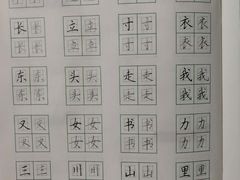 长长 立立 寸寸 衣衣
长长 立立 寸寸 衣衣
东东 头头 走走 我我
东东 头头 走走 我我
又又 女女 书书 力力
又又 女女 书书 力力
三三 川川 山山 里里